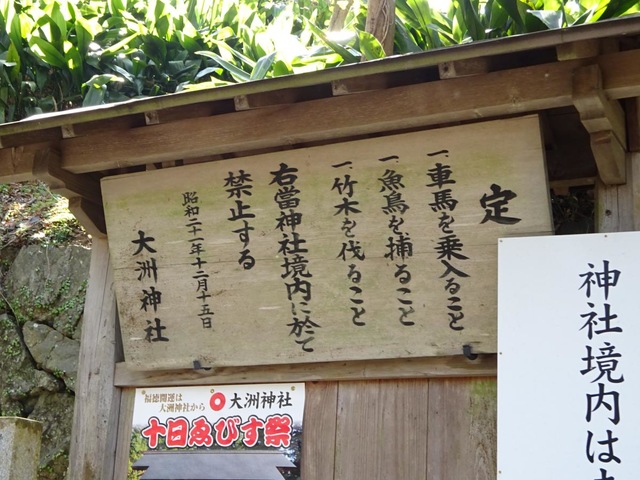 定
一車馬を乗入ること
一魚鳥を捕ること
一竹木を伐ること
右當神社境内に於て
禁止する
昭和二十一年十二月十五日
大洲神社
福徳開運は
大洲神社から
大洲神社
十日ゑびす祭
神社境内は